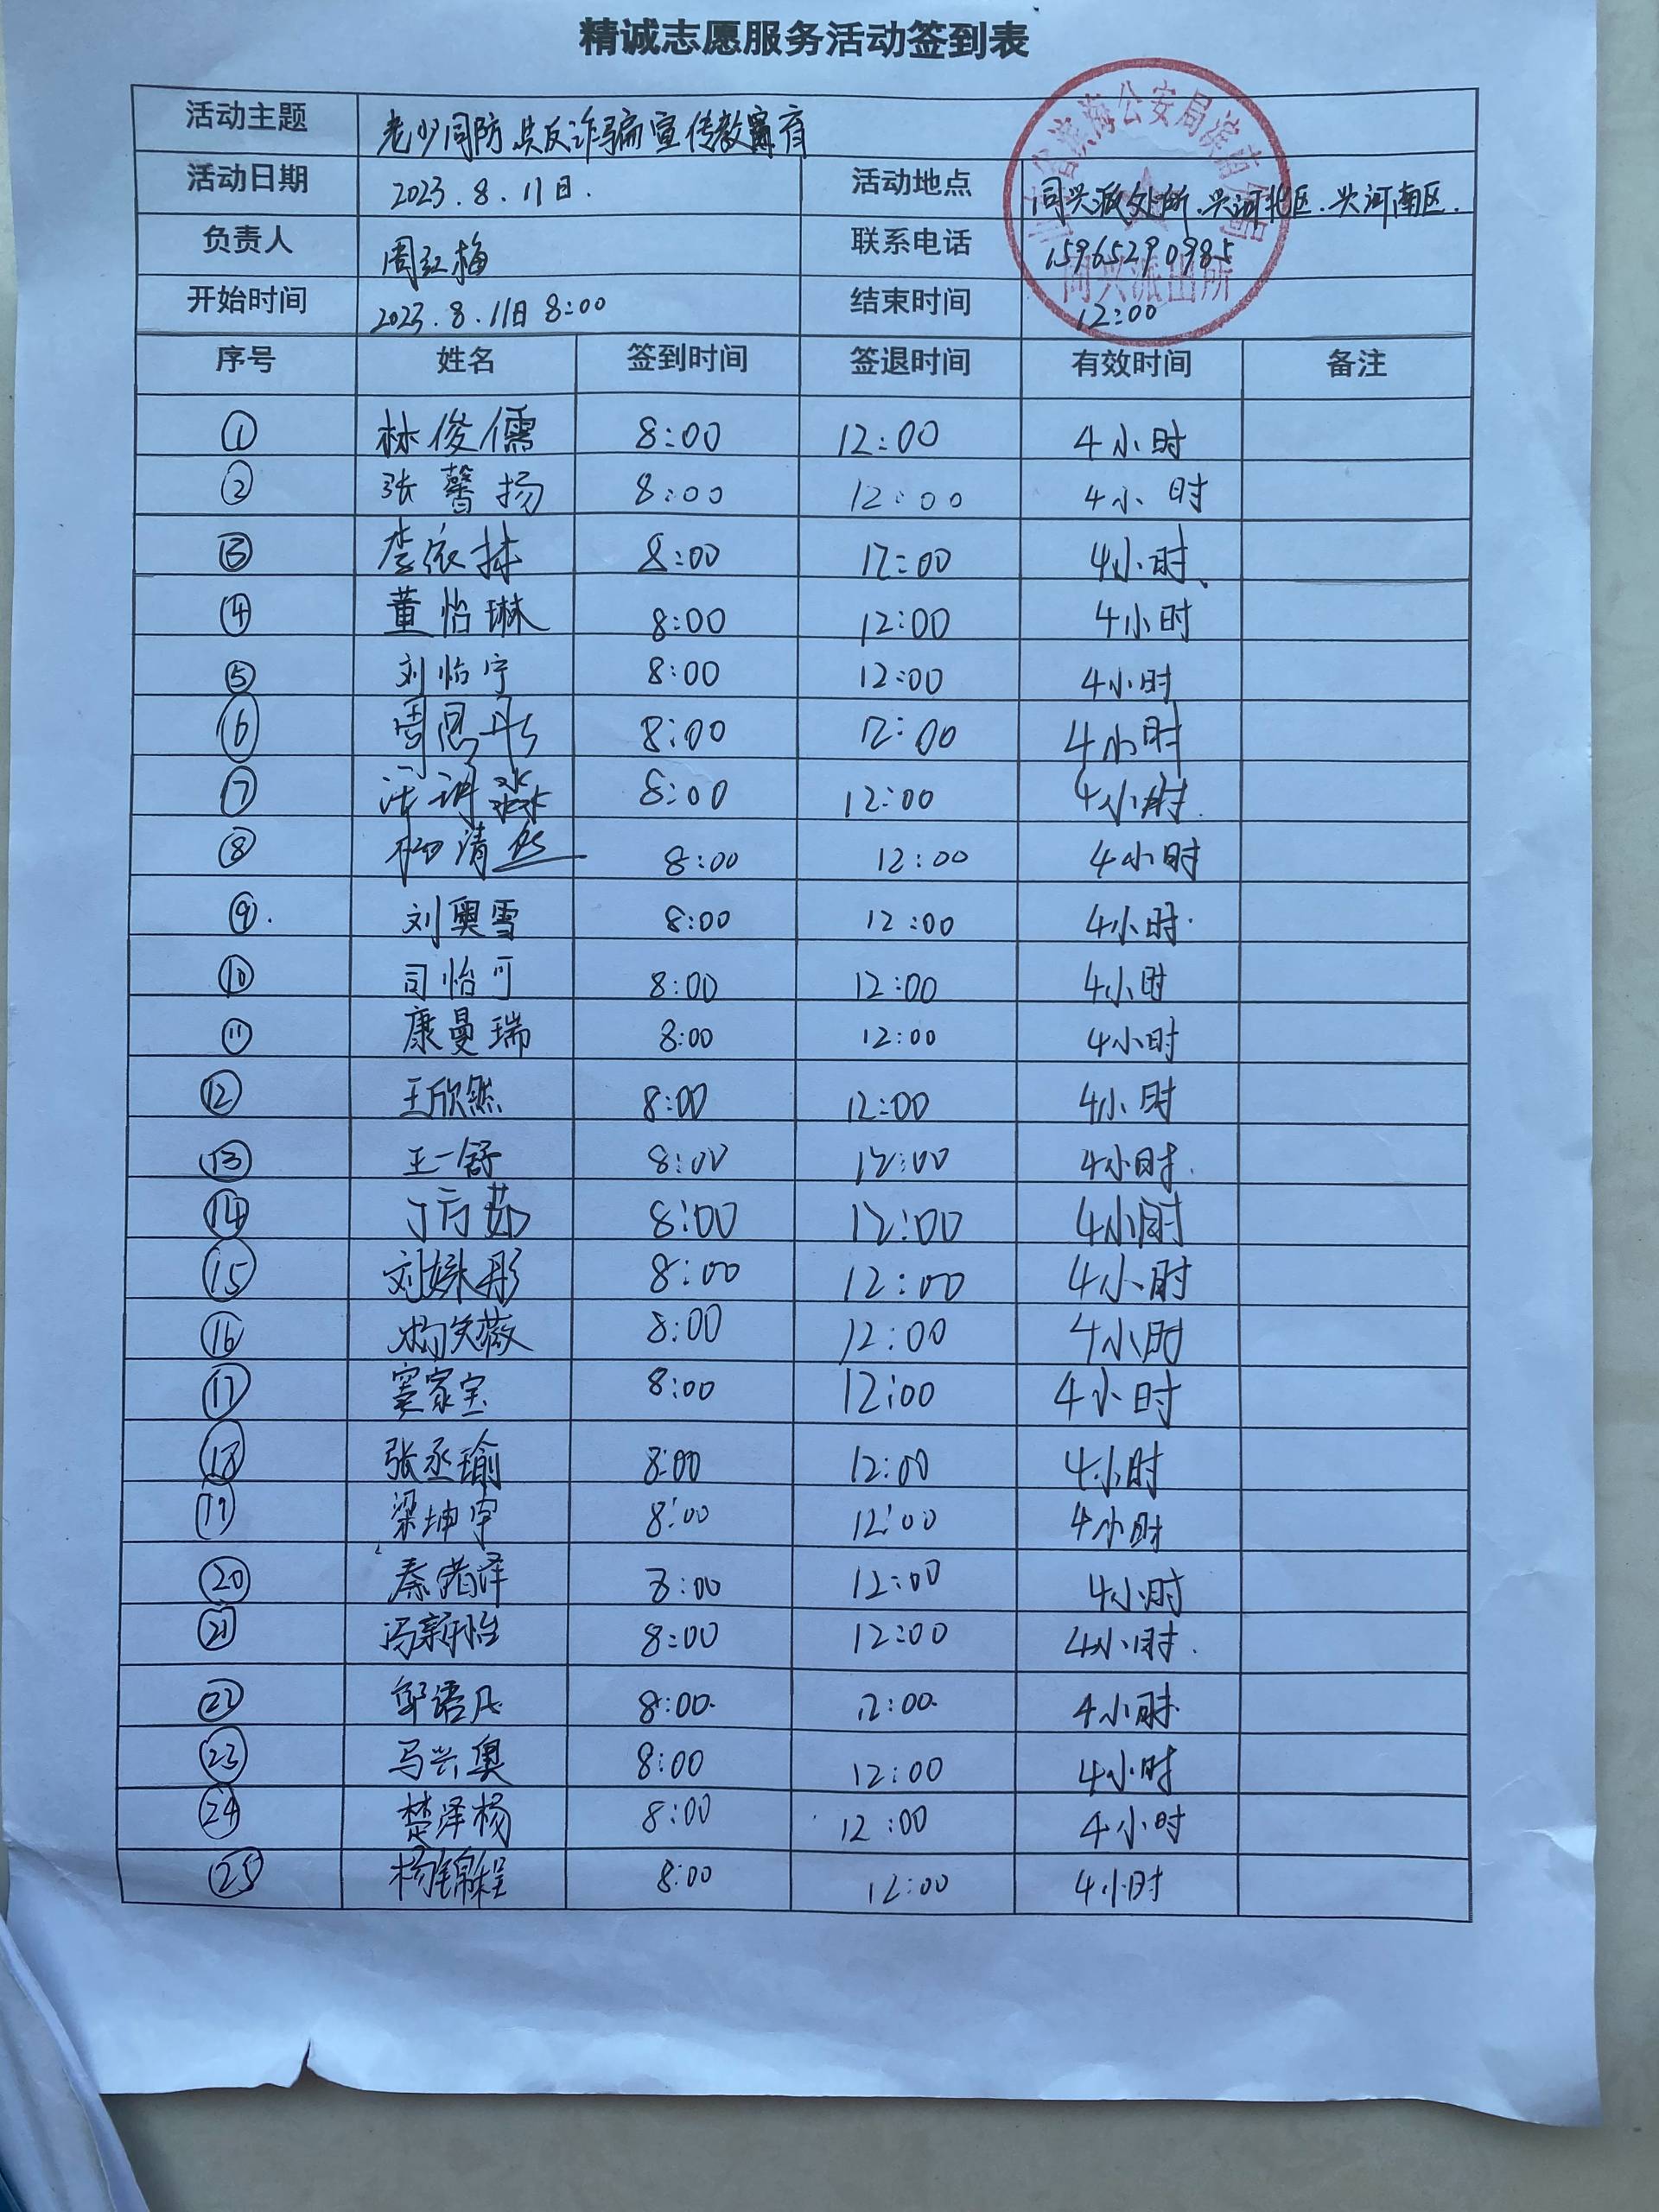 精诚志愿服务活动签到表
活动主题 老少同防 共反诈骗宣传教育
活动日期 2023.8.11日. 活动地点 同兴派处所、兴河北区、兴河南区.
负责人 周红梅 联系电话 15965290985
开始时间 2023.8.11日 8:00 结束时间 12:00
公安局滨
同兴派出所
序号 姓名 签到时间 签退时间 有效时间 备注
① 林俊儒 8:00 12:00 4小时
② 张馨扬 8:00 12:00 4小时
③ 李依林 8:00 12:00 4小时
④ 董怡琳 8:00 12:00 4小时
⑤ 刘怡宁 8:00 12:00 4小时
⑥ 周恩彤 8:00 12:00 4小时
⑦ 淼 8:00 12:00 4小时.
⑧ 杨清然 8:00 12:00 4小时
⑨. 刘奥雪 8:00 12:00 4小时.
⑩ 司怡可 8:00 12:00 4小时
⑪ 康曼瑞 8:00 12:00 4小时
⑫ 王欣然 8:00 12:00 4小时
⑬ 王一舒 8:00 12:00 4小时.
⑭ 丁方茹 8:00 12:00 4小时
⑮ 刘姝彤 8:00 12:00 4小时
⑯ 薇 8:00 12:00 4小时
⑰ 窦家宝 8:00 12:00 4小时
⑱ 张丞瑜 8:00 12:00 4小时
⑲ 梁坤宇 8:00 12:00 4小时
⑳ 秦 泽 8:00 12:00 4小时
㉑ 冯新怡 8:00 12:00 4小时.
㉒ 邹语凡 8:00. 12:00. 4小时.
㉓ 马兴奥 8:00 12:00 4小时
㉔ 楚泽杨 8:00 12:00 4小时
㉕ 杨锦程 8:00 12:00 4小时